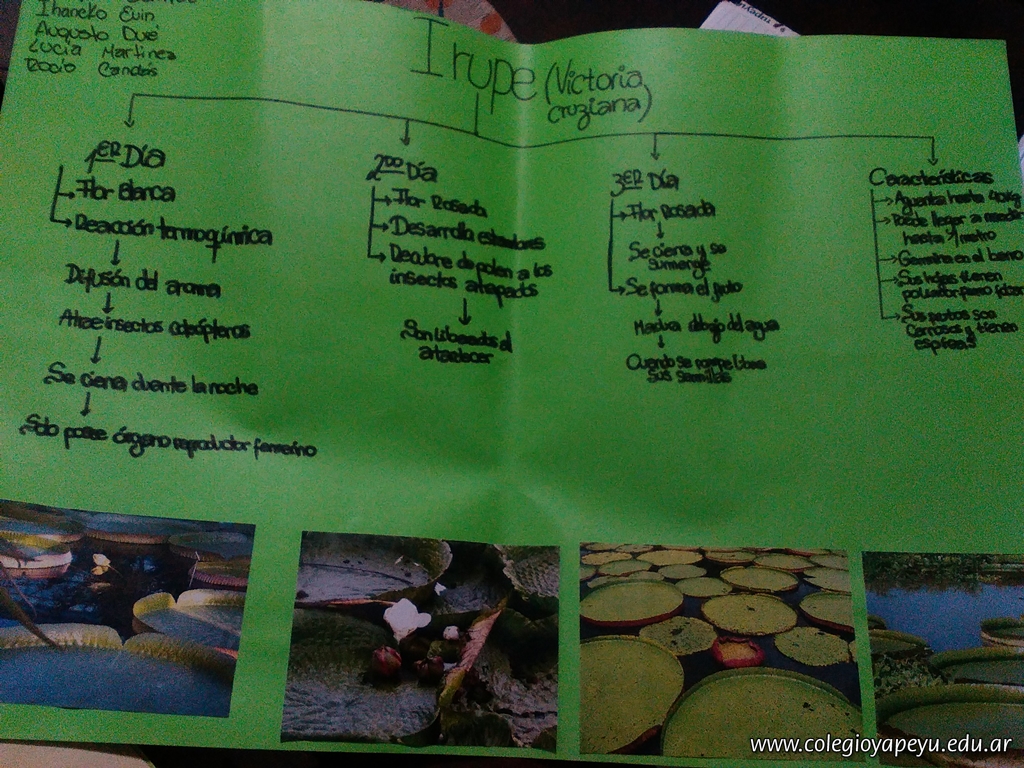 Ihaneko Euin
Augusto Duré
Lucía Martinez
Rocío Candás
Irupe (Victoria
cruziana)
1ER Día
Flor Blanca
Reacción termoquímica
Difusión del aroma
Atrae insectos coleópteros
Se cierra durante la noche
Solo posee órgano reproductor femenino
2DO Día
Flor Rosada
Desarrolla estambres
Recubre de polen a los
insectos atrapados
Son liberados al
atardecer
3ER Día
Flor Rosada
Se cierra y se
sumerge
Se forma el fruto
Madura debajo del agua
Cuando se rompe libera
sus semillas
Características
Aguanta hasta 40Kg
Puede llegar a medir
hasta 1 metro
Germina en el barro
Sus hojas tienen
Sus frutos son
carnosos y tienen
espinas
www.colegioyapeyu.edu.ar